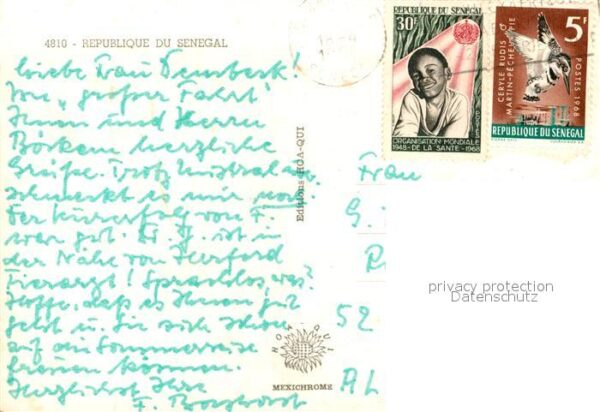 4810 - REPUBLIQUE DU SENEGAL
Liebe Frau
von „großer Fahrt"
Ihnen und Herrn
herzliche
Grüße. Trotz
schmeckt es mir
Der Kurerfolg von F.
war gut. Er ist in
der Nähe von Herford
Tierarzt! Sprachlos, was?
Hoffe, daß es Ihnen gut
geht u. Sie sich schon
auf die Sommerreise
freuen können.
Herzlichst Ihre
F.
Editions HOA-QUI
HOA-QUI
MEXICHROME
REPUBLIQUE DU SENEGAL
30F
ORGANISATION MONDIALE
1948 - DE LA SANTE - 1968
5F
CERYLE RUDIS ♂
MARTIN-PÊCHEUR PIE
POSTES 1968
REPUBLIQUE DU SENEGAL
Frau
G.
52
AL
privacy protection
Datenschutz